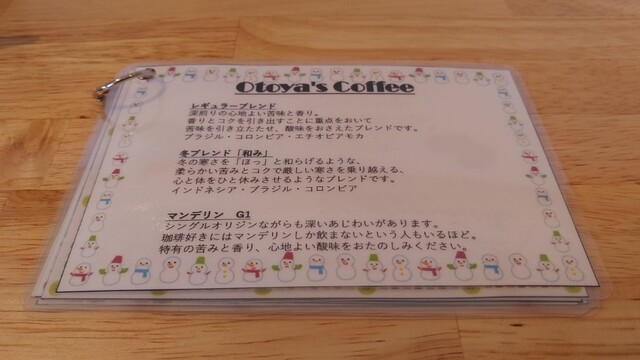 Otoya's Coffee
レギュラーブレンド
深煎りの心地よい苦味と香り。
香りとコクを引き出すことに重点をおいて
苦味を引き立たたせ、酸味をおさえたブレンドです。
ブラジル・コロンビア・エチオピアモカ
冬ブレンド「和み」
冬の寒さを「ほっ」と和らげるような、
柔らかい苦みとコクで厳しい寒さを乗り越える、
心と体をひと休みさせるようなブレンドです。
インドネシア・ブラジル・コロンビア
マンデリン G1
シングルオリジンながらも深いあじわいがあります。
珈琲好きにはマンデリンしか飲まないという人もいるほど。
特有の苦みと香り、心地よい酸味をおたのしみください。